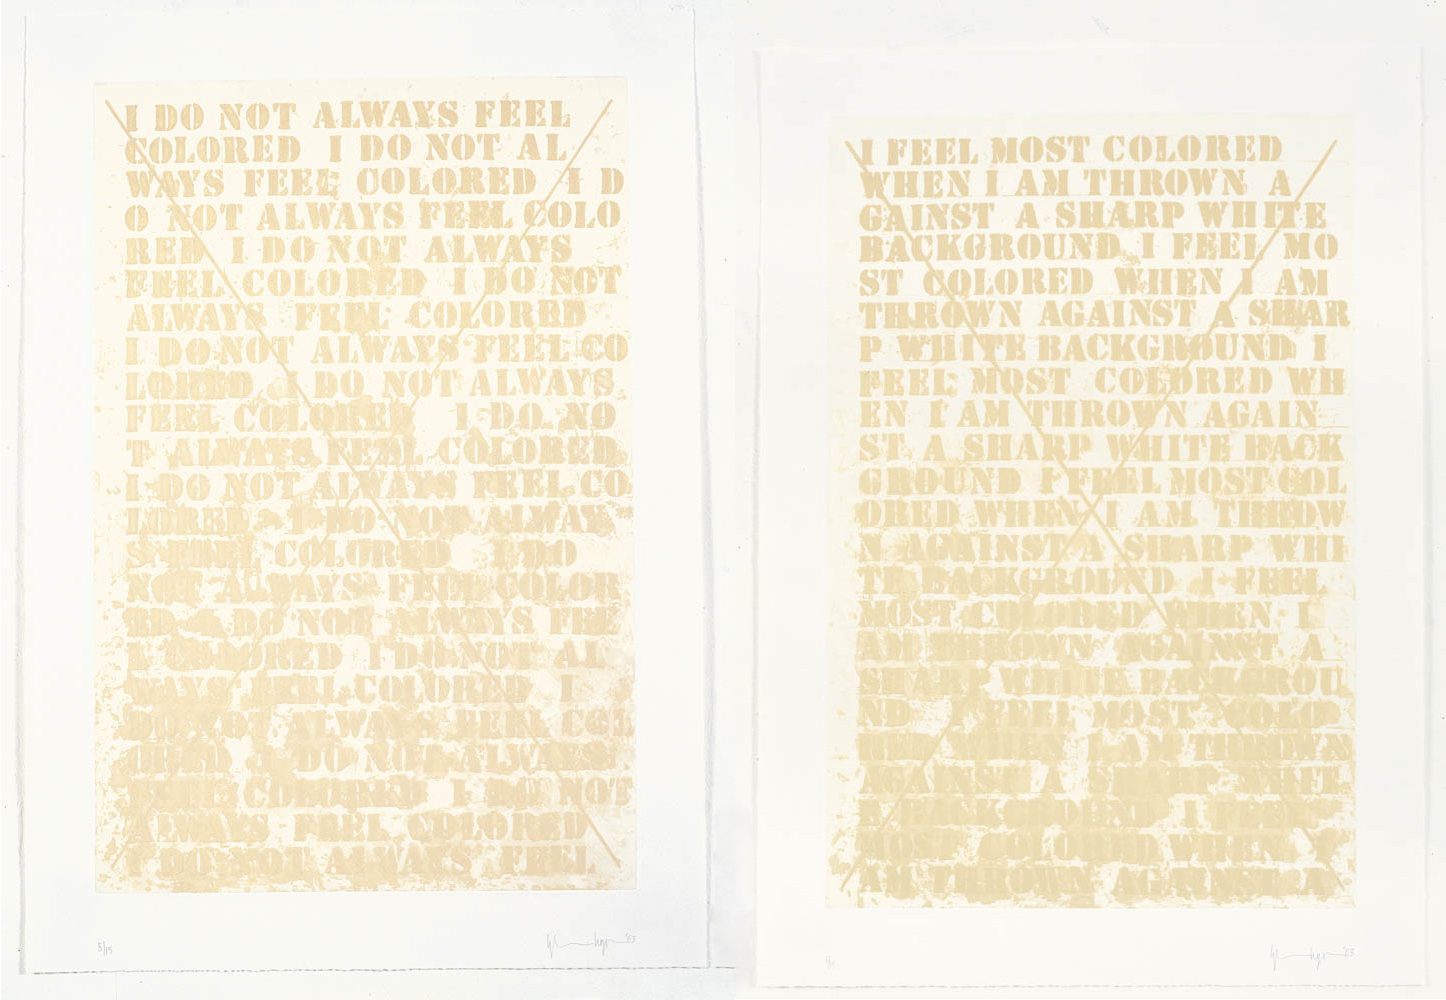 I DO NOT ALWAYS FEEL
COLORED I DO NOT AL
WAYS FEEL COLORED I D
O NOT ALWAYS FEEL COLO
RED I DO NOT ALWAYS
FEEL COLORED I DO NOT
ALWAYS FEEL COLORED
I DO NOT ALWAYS FEEL CO
LORED I DO NOT ALWAYS
FEEL COLORED I DO NO
T ALWAYS FEEL COLORED
I DO NOT ALWAYS FEEL CO
LORED I DO NOT ALWAY
S FEEL COLORED I DO
NOT ALWAYS FEEL COLOR
ED I DO NOT ALWAYS FEE
L COLORED I DO NOT AL
WAYS FEEL COLORED I
DO NOT ALWAYS FEEL COL
ORED I DO NOT ALWAYS
FEEL COLORED I DO NOT
ALWAYS FEEL COLORED
I DO NOT ALWAYS FEEL
5/15
'03
I FEEL MOST COLORED
WHEN I AM THROWN A
GAINST A SHARP WHITE
BACKGROUND I FEEL MO
ST COLORED WHEN I AM
THROWN AGAINST A SHAR
P WHITE BACKGROUND I
FEEL MOST COLORED WH
EN I AM THROWN AGAIN
ST A SHARP WHITE BACK
GROUND I FEEL MOST COL
ORED WHEN I AM THROW
N AGAINST A SHARP WHI
TE BACKGROUND I FEEL
MOST COLORED WHEN I
AM THROWN AGAINST A
SHARP WHITE BACKGROU
ND I FEEL MOST COLO
RED WHEN I AM THROWN
AGAINST A SHARP WHIT
E BACKGROUND I FEEL
MOST COLORED WHEN I
AM THROWN AGAINST A